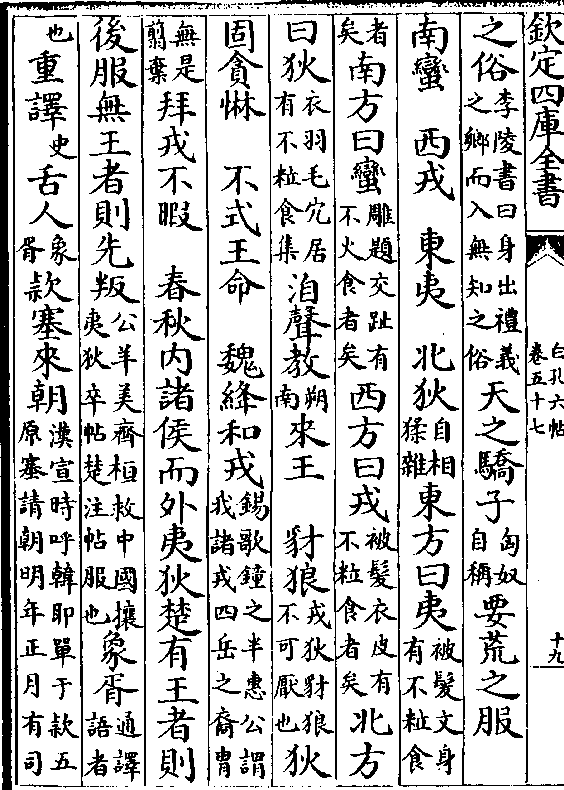 欽定四庫全書
白孔六帖
卷五十七
十九
之俗李陵書曰身出禮義之鄉而入無知之俗天之驕子匈奴自稱要荒之服
南蠻　西戎　東夷　北狄自相猱雜東方曰夷被髮文身有不粒食
者矣南方曰蠻雕題交趾有不火食者矣西方曰戎被髮衣皮有不粒食者矣北方
曰狄衣羽毛穴居有不粒食集洎聲教朔南來王　豺狼戎狄豺狼不可厭也狄
固貪惏　不式王命　魏絳和戎錫歌鐘之半惠公謂我諸戎四岳之裔胄
無是翦棄拜戎不暇　春秋內諸侯而外夷狄楚有王者則
後服無王者則先叛公羊美齊桓救中國攘夷狄卒帖楚注帖服也象胥通譯語者
也重譯史舌人象胥款塞來朝漢宣時呼韓耶單于款五原塞請朝明年正月有司